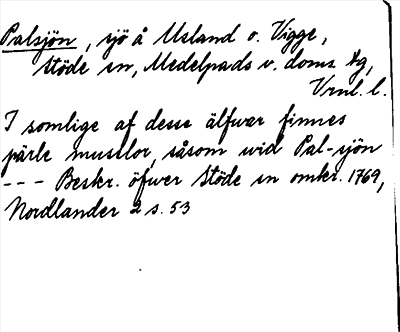 Palsjön, sjö å Usland o. Vigge,
Stöde sn, Medelpads v. doms. tg,
Vrnl. l.
I somlige af desse älfwer finnes
pärle musslor, såsom wid Pal-sjön
--- Beskr. öfwer Stöde sn omkr. 1769,
Nordlander 2 s. 53